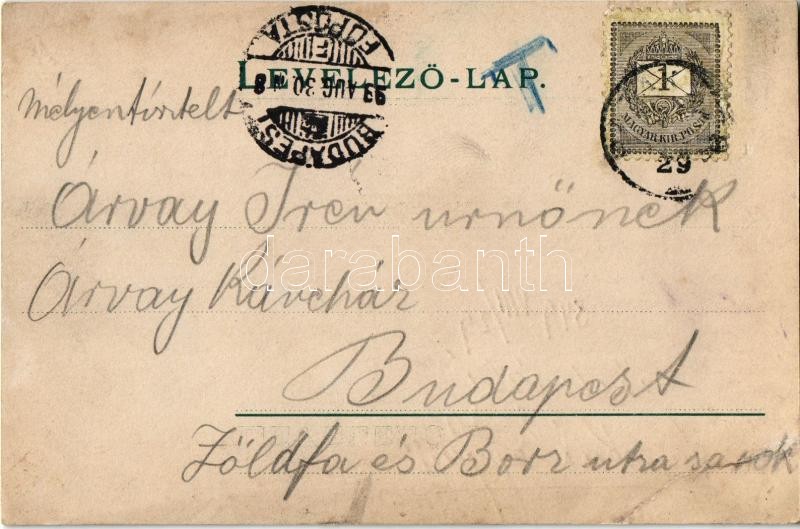 LEVELEZŐ-LAP.
BUDAPEST
FŐPOSTA
99 AUG 30
T
1
MAGYAR KIR. POSTA
29
Mélyentisztelt
Árvay Irén urnőnek
Árvay Kávéház
Budapest
Zöldfa és Borz utca sarok
darabanth